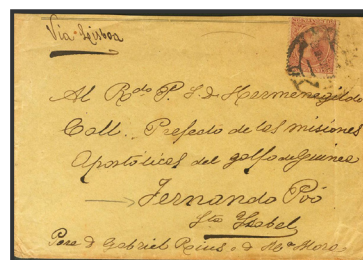 Via Lisboa
Al Rdo P. S. D. Hermenegildo
Coll. Prefecto de las misiones
Apostólicas del golfo de Guinea
Fernando Póo
Sta Isabel
Para D. Gabriel